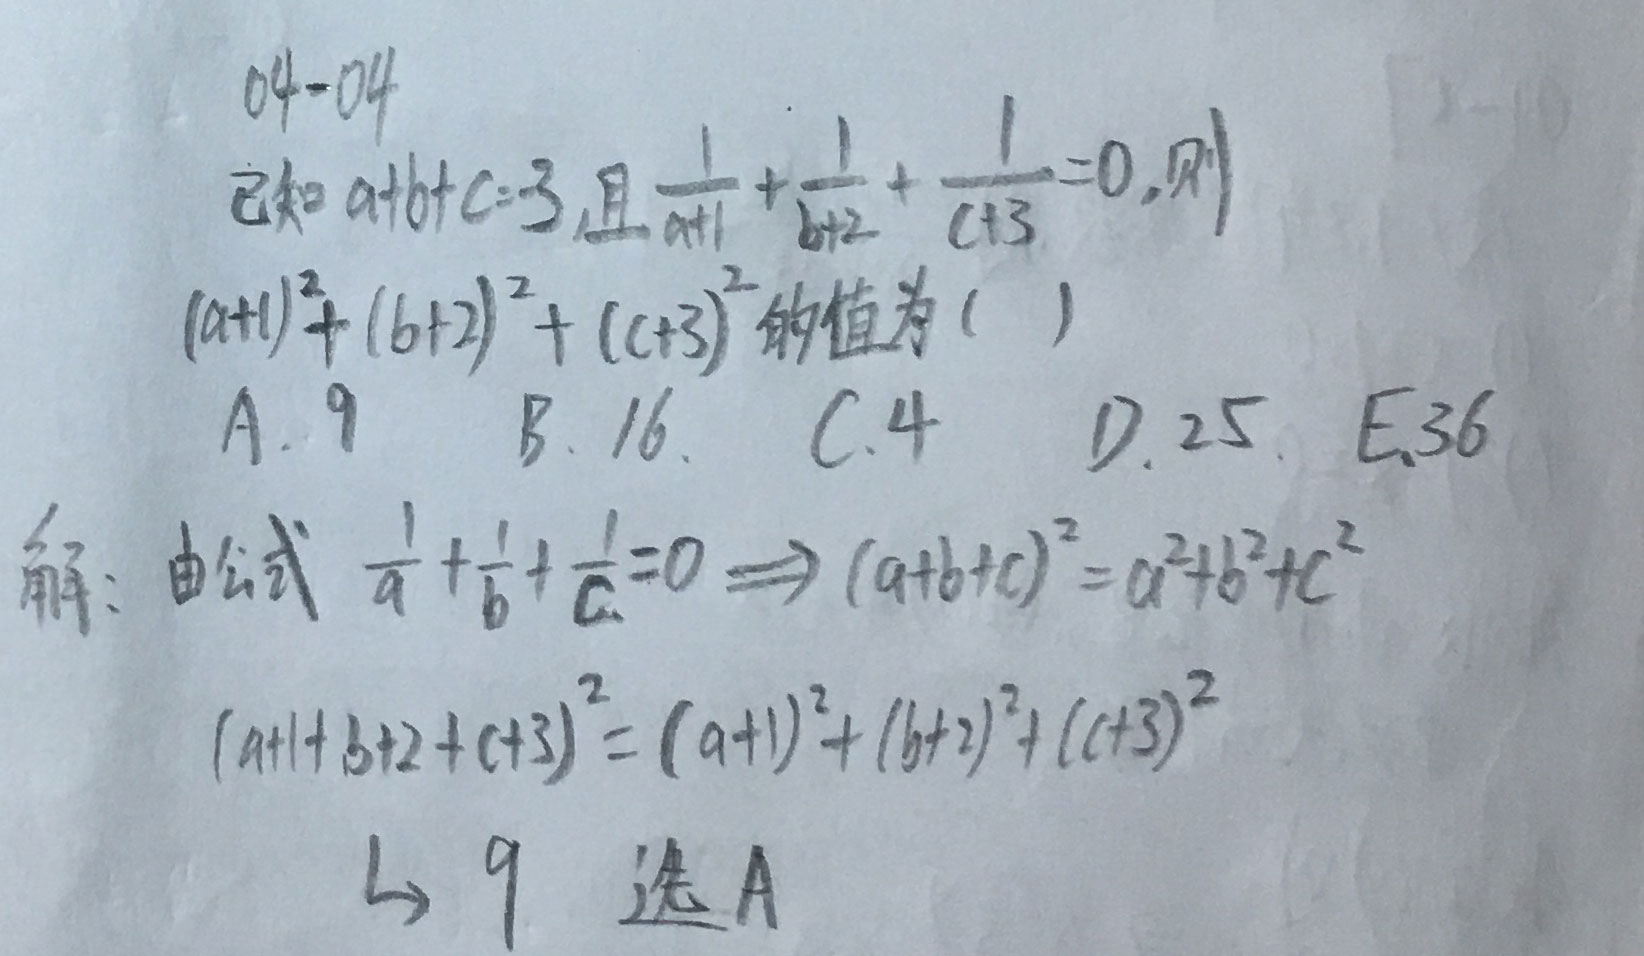 04-04
已知 a+b+c=3,且 1/(a+1) + 1/(b+2) + 1/(c+3) =0,则
(a+1)²+(b+2)²+(c+3)²的值为( )
A. 9 B. 16. C.4 D. 25. E.36
解: 由公式 1/a + 1/b + 1/c =0 ⟹ (a+b+c)²=a²+b²+c²
(a+1+b+2+c+3)²=(a+1)²+(b+2)²+(c+3)²
↳ 9 选A